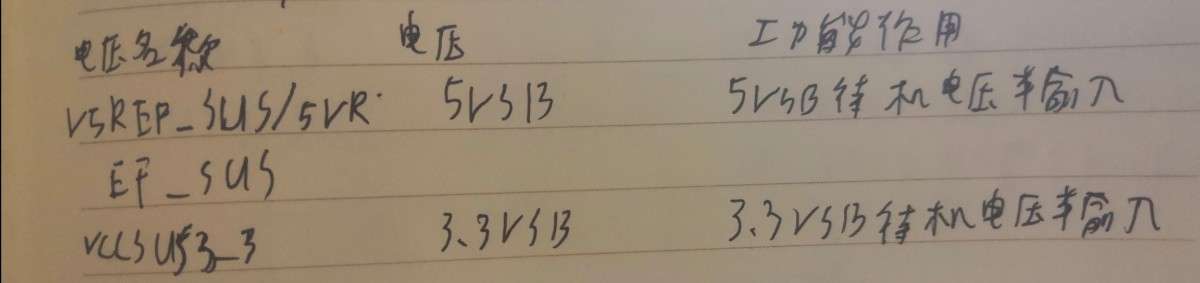 电压名称 电压 功能作用
V5REP_SUS/5VR 5VSB 5VSB待机电压输入
EF_SUS
VCCSUS3_3 3.3VSB 3.3VSB待机电压输入